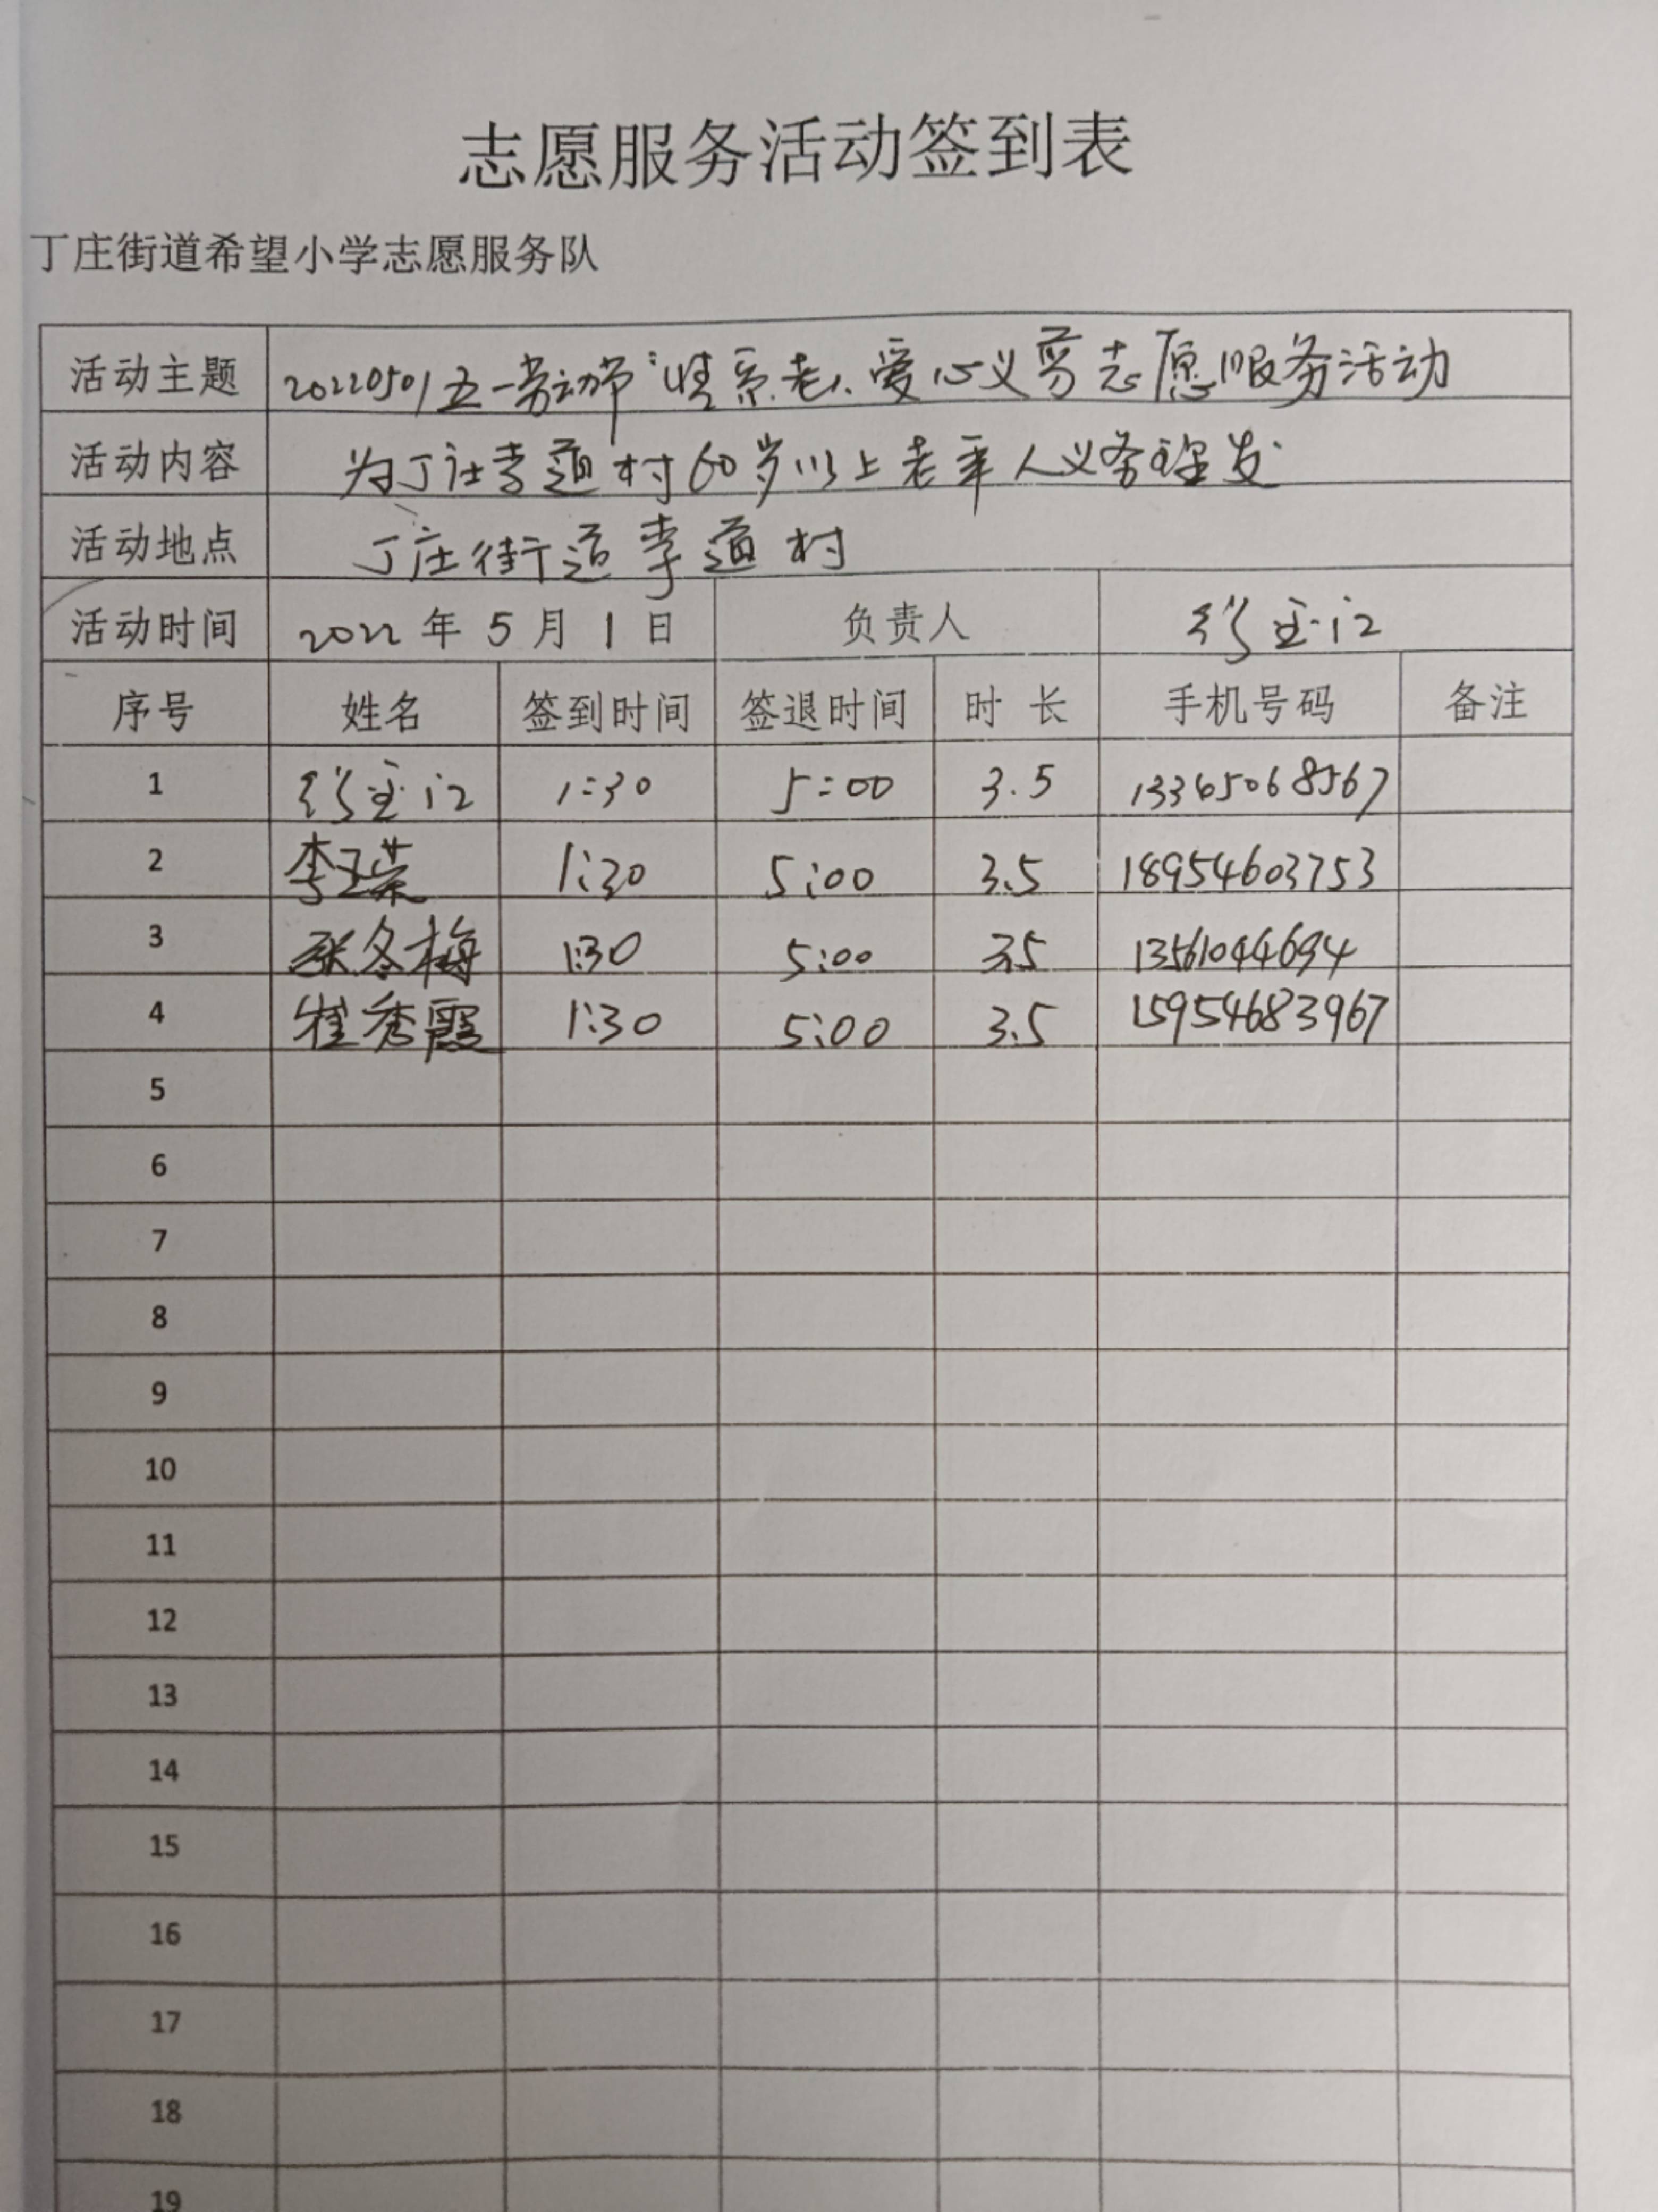 志愿服务活动签到表
丁庄街道希望小学志愿服务队
活动主题 20220501五一劳动节“情系老人爱心义剪志愿服务活动
活动内容 为丁庄李道村60岁以上老年人义务理发
活动地点 丁庄街道李道村
活动时间 2022年5月1日 负责人
序号 姓名 签到时间 签退时间 时长 手机号码 备注
1 1:30 5:00 3.5 13365068567
2 李玉荣 1:30 5:00 3.5 18954603753
3 张冬梅 1:30 5:00 3.5 13561044694
4 崔秀霞 1:30 5:00 3.5 15954683967
5
6
7
8
9
10
11
12
13
14
15
16
17
18
19